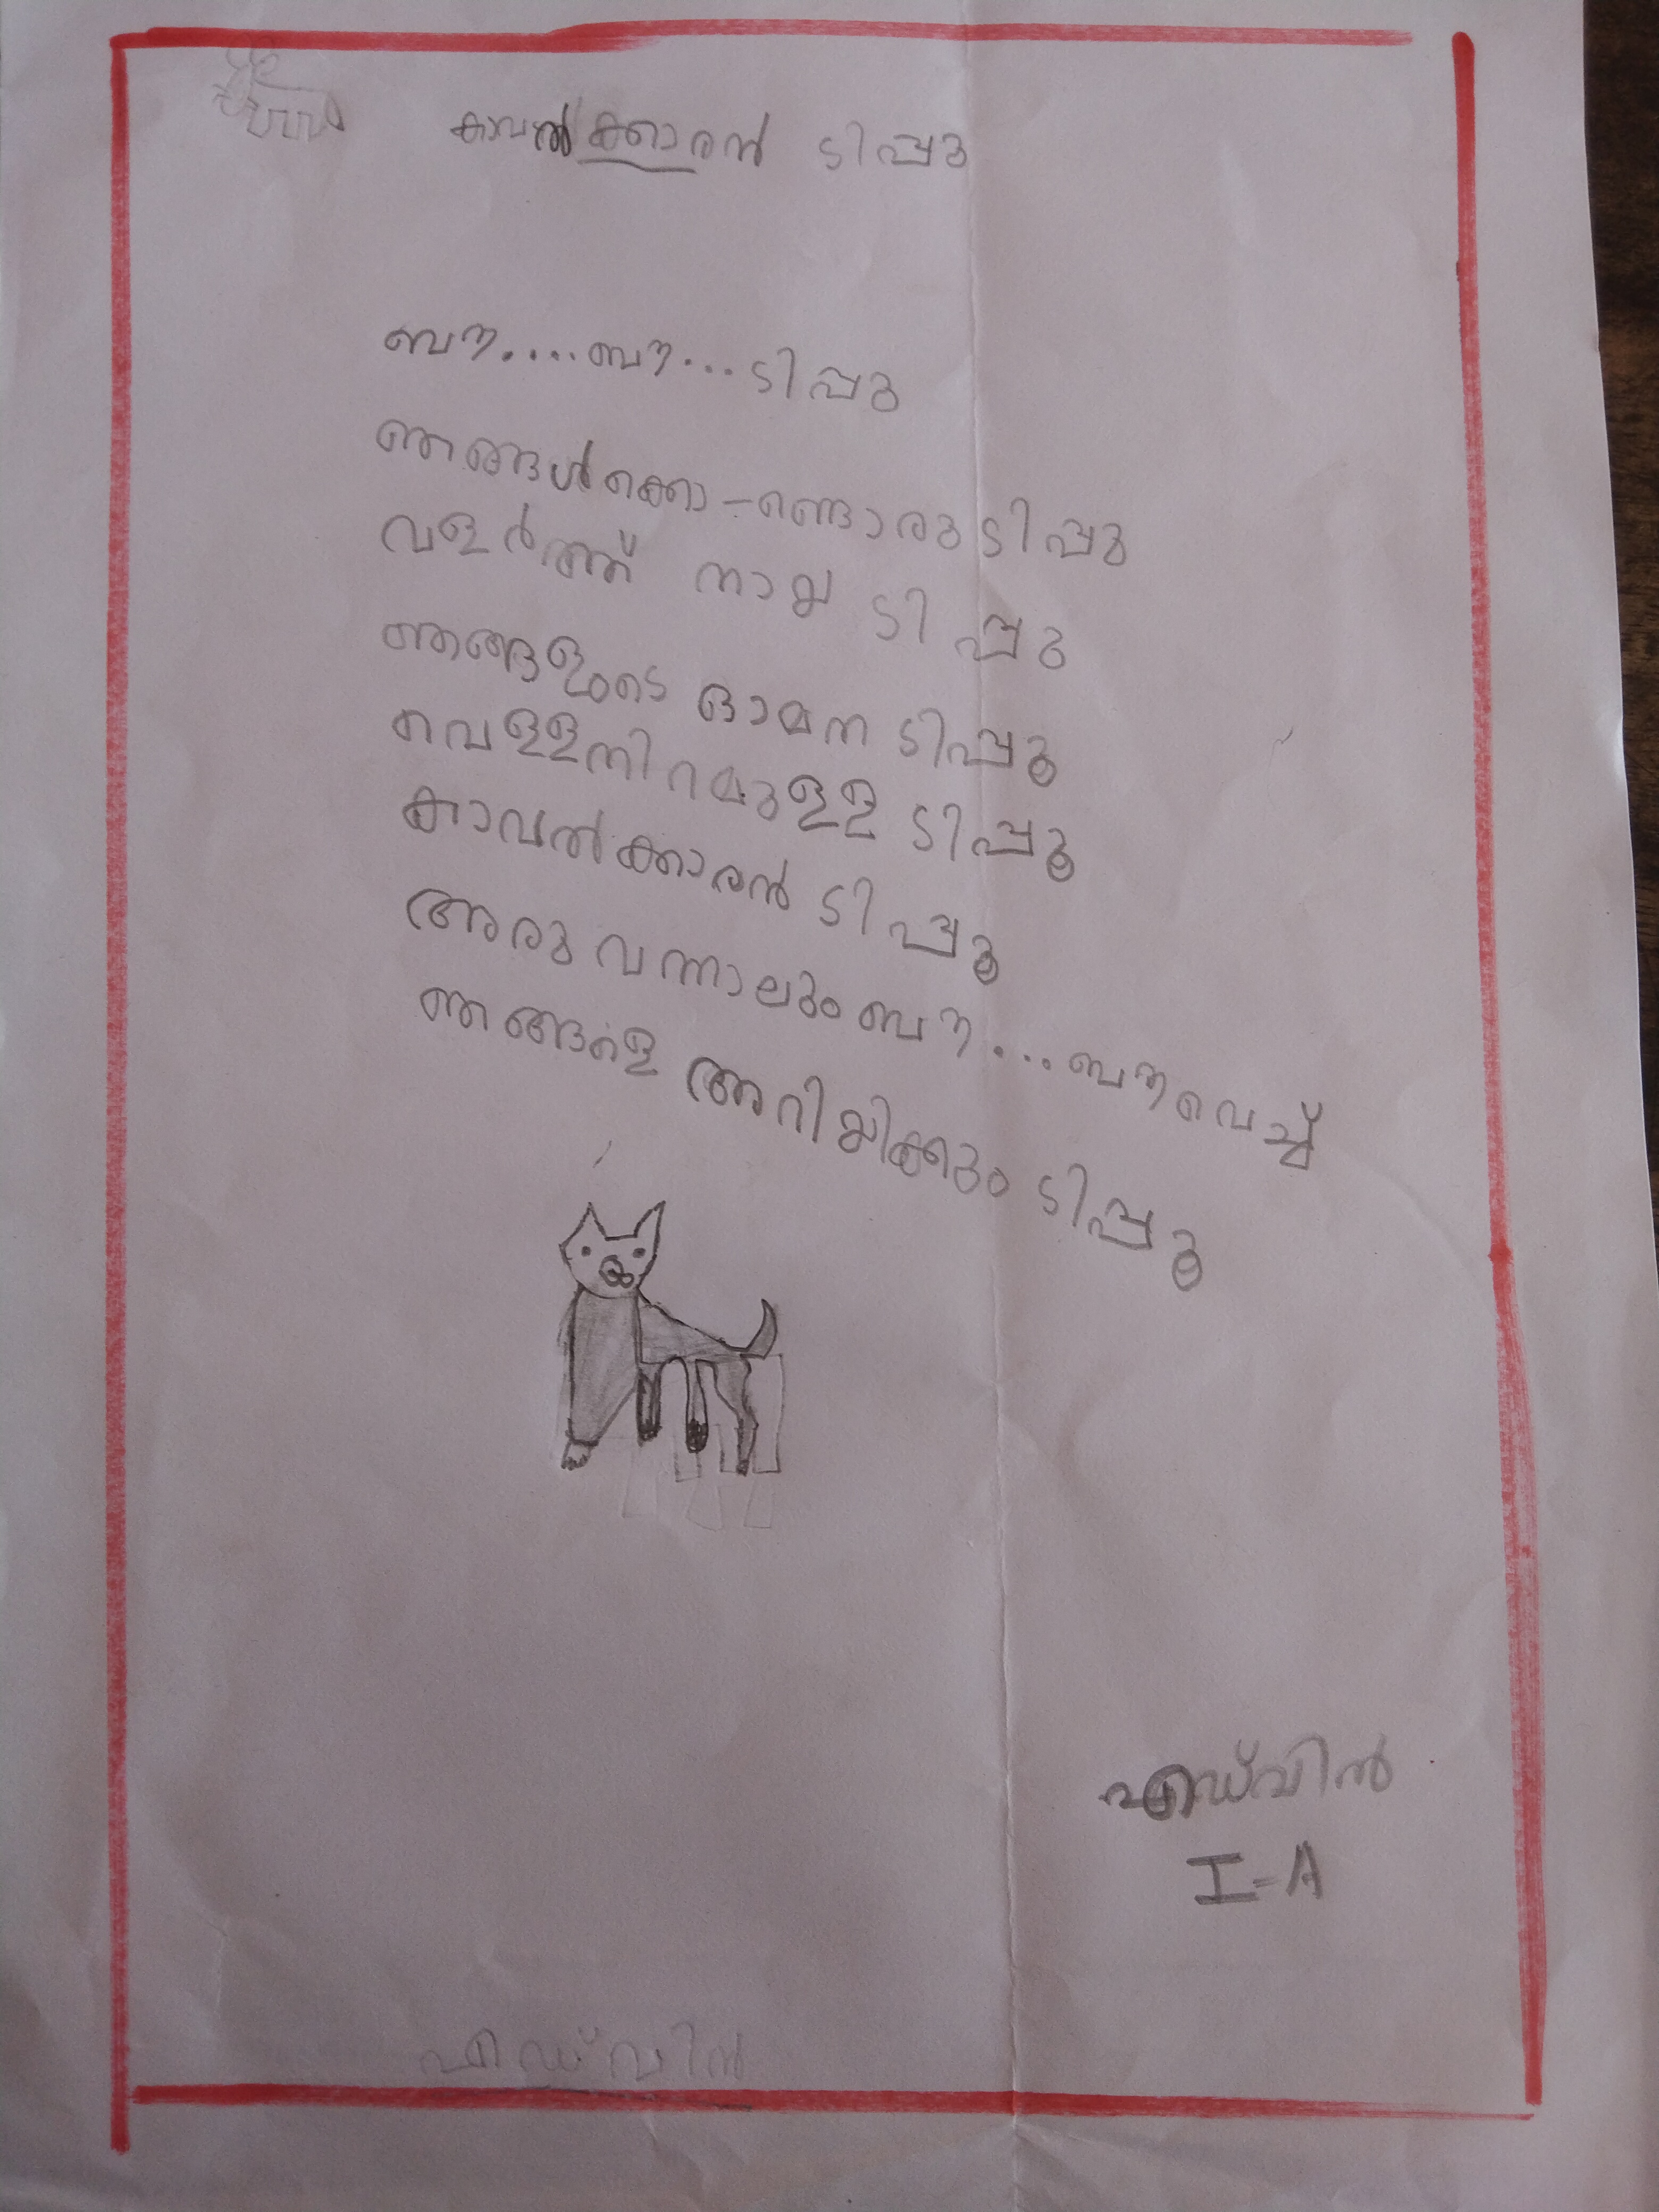 കാവൽക്കാരൻ ടിപ്പു
ബൗ....ബൗ...ടിപ്പു
ഞങ്ങൾക്കൊ-ണ്ടൊരു ടിപ്പു
വളർത്ത് നായ ടിപ്പു
ഞങ്ങളുടെ ഓമന ടിപ്പു
വെള്ളനിറമുള്ള ടിപ്പു
കാവൽക്കാരൻ ടിപ്പു
ആരു വന്നാലും ബൗ...ബൗ വെച്ച്
ഞങ്ങളെ അറിയിക്കും ടിപ്പു
എഡ്വിൻ
I-A
എഡ്വിൻ